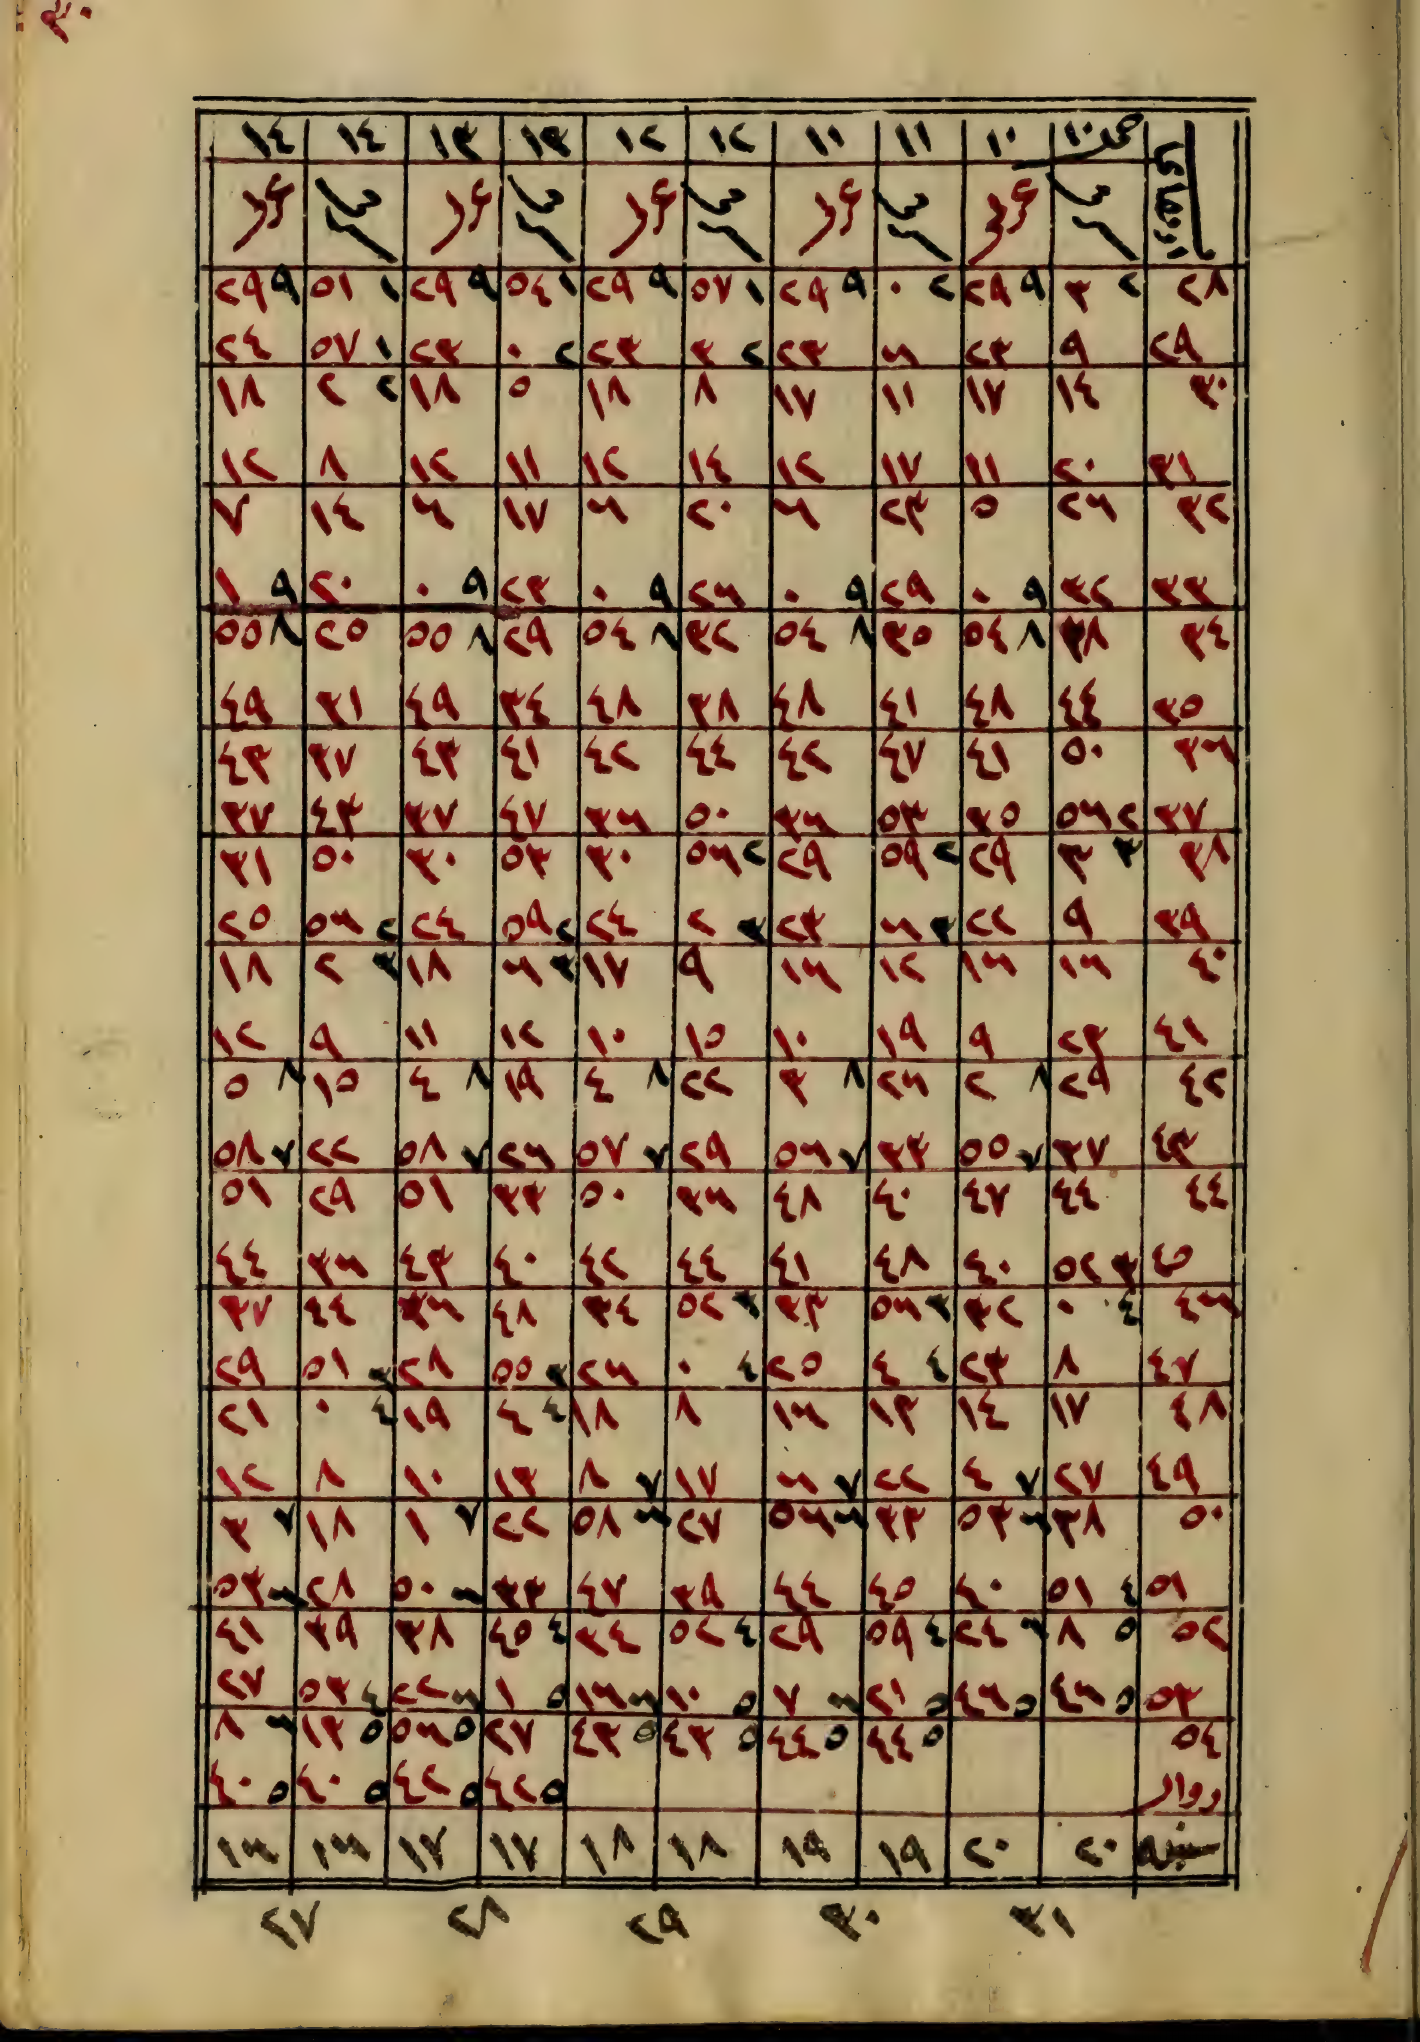 ٣٠
١٠ ١٠ ١١ ١١ ١٢ ١٢ ١٣ ١٣ ١٤ ١٤
٢٨ ٢ ٣ ٩ ٢٩ ٢ ٠ ٩ ٢٩ ١ ٥٧ ٩ ٢٩ ١ ٥٤ ٩ ٢٩ ١ ٥١ ٩ ٢٩
٢٩ ٩ ٢٣ ٦ ٢٣ ٢ ٣ ٢٣ ٢ ٠ ٢٣ ١ ٥٧ ٢٤
٣٠ ١٤ ١٧ ١١ ١٧ ٨ ١٨ ٥ ١٨ ٢ ٢ ١٨
٣١ ٢٠ ١١ ١٧ ١٢ ١٤ ١٢ ١١ ١٢ ٨ ١٢
٣٢ ٢٦ ٥ ٢٣ ٦ ٢٠ ٦ ١٧ ٦ ١٤ ٧
٣٣ ٣٢ ٩ ٠ ٢٩ ٩ ٠ ٢٦ ٩ ٠ ٢٣ ٩ ٠ ٢٠ ٩ ١
٣٤ ٣٨ ٨ ٥٤ ٣٥ ٨ ٥٤ ٣٢ ٨ ٥٤ ٢٩ ٨ ٥٥ ٢٥ ٨ ٥٥
٣٥ ٤٤ ٤٨ ٤١ ٤٨ ٣٨ ٤٨ ٣٤ ٤٩ ٣١ ٤٩
٣٦ ٥٠ ٤١ ٤٧ ٤٢ ٤٤ ٤٢ ٤١ ٤٣ ٣٧ ٤٣
٣٧ ٢ ٥٦ ٣٥ ٥٣ ٣٦ ٥٠ ٣٦ ٤٧ ٣٧ ٤٣ ٣٧
٣٨ ٣ ٣ ٢٩ ٢ ٥٩ ٢٩ ٢ ٥٦ ٣٠ ٥٣ ٣٠ ٥٠ ٣١
٣٩ ٩ ٢٢ ٣ ٦ ٢٣ ٣ ٢ ٢٤ ٢ ٥٩ ٢٤ ٢ ٥٦ ٢٥
٤٠ ١٦ ١٦ ١٢ ١٦ ٩ ١٧ ٣ ٦ ١٨ ٣ ٢ ١٨
٤١ ٢٣ ٩ ١٩ ١٠ ١٥ ١٠ ١٢ ١١ ٩ ١٢
٤٢ ٢٩ ٨ ٢ ٢٦ ٨ ٣ ٢٢ ٨ ٤ ١٩ ٨ ٤ ١٥ ٨ ٥
٤٣ ٣٧ ٧ ٥٥ ٣٣ ٧ ٥٦ ٢٩ ٧ ٥٧ ٢٦ ٧ ٥٨ ٢٢ ٧ ٥٨
٤٤ ٤٤ ٤٧ ٤٠ ٤٨ ٣٦ ٥٠ ٣٣ ٥١ ٢٩ ٥١
٤٥ ٣ ٥٢ ٤٠ ٤٨ ٤١ ٤٤ ٤٢ ٤٠ ٤٣ ٣٦ ٤٤
٤٦ ٤ ٠ ٣٢ ٣ ٥٦ ٣٣ ٣ ٥٢ ٣٤ ٤٨ ٣٦ ٤٤ ٣٧
٤٧ ٨ ٢٣ ٤ ٤ ٢٥ ٤ ٠ ٢٦ ٣ ٥٥ ٢٨ ٣ ٥١ ٢٩
٤٨ ١٧ ١٤ ١٣ ١٦ ٨ ١٨ ٤ ٤ ١٩ ٤ ٠ ٢١
٤٩ ٢٧ ٧ ٤ ٢٢ ٧ ٦ ١٧ ٧ ٨ ١٣ ١٠ ٨ ١٢
٥٠ ٣٨ ٦ ٥٣ ٣٣ ٦ ٥٦ ٢٧ ٦ ٥٨ ٢٢ ٧ ١ ١٨ ٧ ٣
٥١ ٤ ٥١ ٤٠ ٤٥ ٤٤ ٣٩ ٤٧ ٣٣ ٦ ٥٠ ٢٨ ٦ ٥٣
٥٢ ٥ ٨ ٦ ٢٤ ٤ ٥٩ ٢٩ ٤ ٥٢ ٣٤ ٤ ٤٥ ٣٨ ٣٩ ٤١
٥٣ ٥ ٤٦ ٥ ٤٦ ٥ ٢١ ٦ ٧ ٥ ١٠ ٦ ١٦ ٥ ١ ٦ ٢٢ ٤ ٥٣ ٢٧
٥٤ ٥ ٤٤ ٥ ٤٤ ٥ ٤٣ ٥ ٤٣ ٢٧ ٥ ٥٦ ٥ ١٣ ٦ ٨
زوال ٥ ٤٢ ٥ ٤٢ ٥ ٤٠ ٥ ٤٠
سنبله ٢٠ ٢٠ ١٩ ١٩ ١٨ ١٨ ١٧ ١٧ ١٦ ١٦
٣١ ٣٠ ٢٩ ٢٨ ٢٧